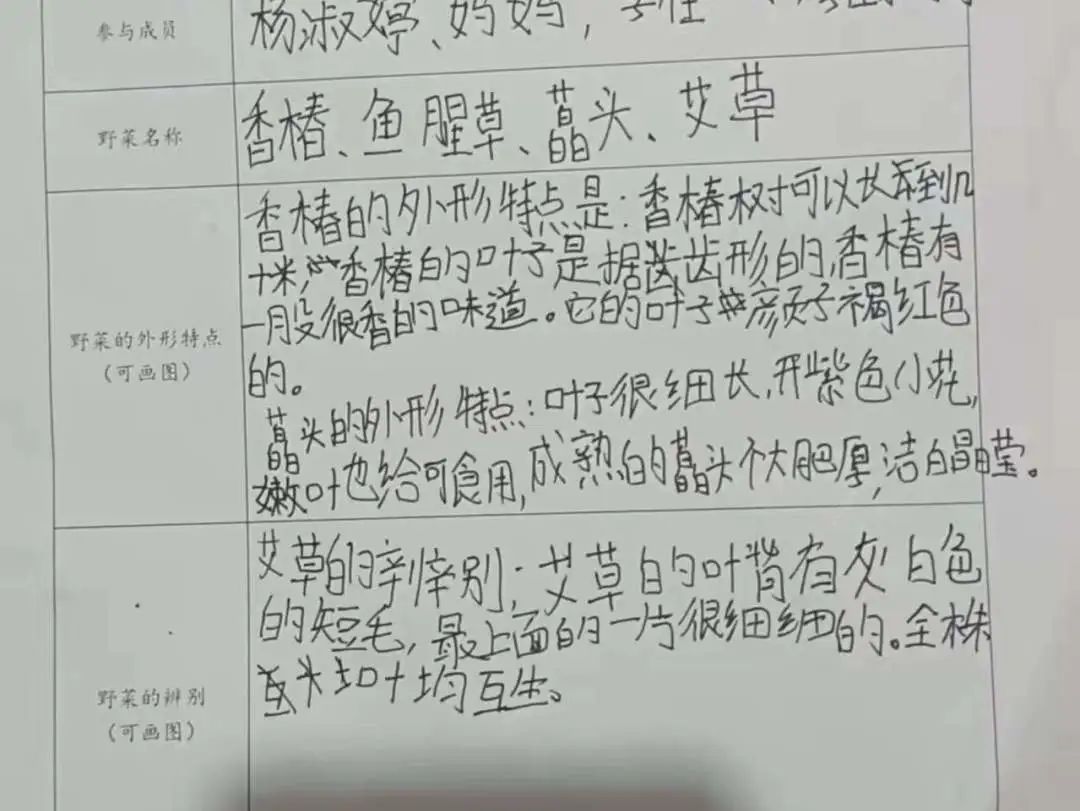 参与成员
杨淑婷、妈妈,
野菜名称
香椿、鱼腥草、藠头、艾草
野菜的外形特点
(可画图)
香椿的外形特点是:香椿树可以长到几
十米,香椿的叶子是据齿形的,香椿有
一股很香的味道。它的叶子颜子褐红色
的。
藠头的外形特点:叶子很细长,开紫色小花,
嫩叶也给可食用,成熟的藠头个大肥厚,洁白晶莹。
野菜的辨别
(可画图)
艾草的辛别:艾草的叶背有灰白色
的短毛,最上面的一片很细细的。全株
叶均互生。